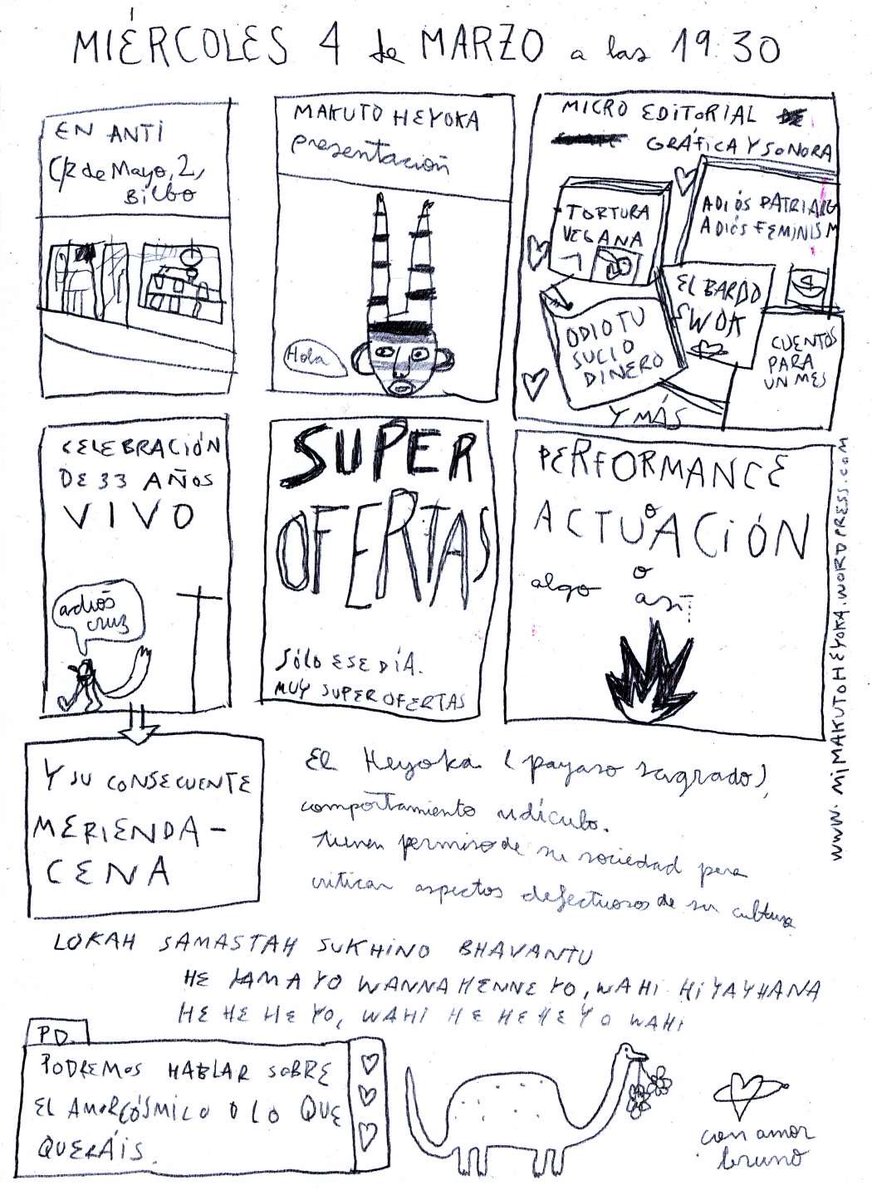 MIÉRCOLES 4 de MARZO a las 19:30
EN ANTI
C/2 de Mayo, 2,
BILBO
MAKUTO HEYOKA
presentación
Hola
MICRO EDITORIAL
GRÁFICA Y SONORA
TORTURA
VEGANA
ADIÓS PATRIARC
ADIÓS FEMINISM
EL BARDO
WOK
ODIO TU
SUCIO
DINERO
CUENTOS
PARA
UN MES
Y MÁS
CELEBRACIÓN
DE 33 AÑOS
VIVO
adiós
cruz
SUPER
OFERTAS
SÓLO ESE DÍA.
MUY SUPER OFERTAS
PERFORMANCE
o
ACTUACIÓN
o
algo así
WWW.MIMAKUTOHEYOKA.WORDPRESS.COM
Y SU CONSECUENTE
MERIENDA-
CENA
El Heyoka (payaso sagrado),
comportamiento ridículo.
tienen permiso de su sociedad para
criticar aspectos defectuosos de su cultura
LOKAH SAMASTAH SUKHINO BHAVANTU
HE YAMA YO WANNA HENNE YO, WAHI HIYAYHANA
HE HE HE YO, WAHI HE HEHE YO WAHI
PD.
PODREMOS HABLAR SOBRE
EL AMOR CÓSMICO O LO QUE
QUERÁIS.
con amor
bruno